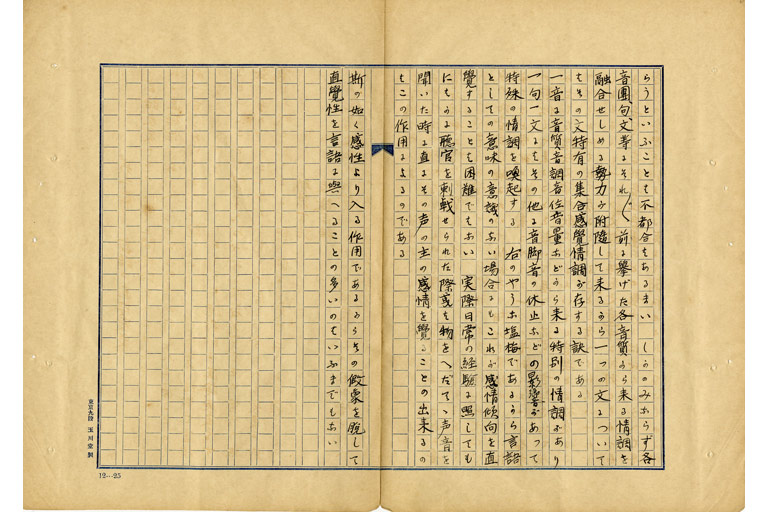 らうといふことも不都合もあるまい　しかのみならず各
音團句文等にそれ〴〵前に擧げた各音質から来る情調を
融合せしめる勢力が附隨して来るから一つの文について
もその文特有の集合感覺情調が存する訣である
一音に音質音調音位音量などから来る特別の情調があり
一句一文にもその他に音脚音の休止などの影響があつて
特殊の情調を喚起する　右のやうな塩梅であるから言語
としての意味の意識のない場合にもこれが感情傾向を直
覺することも困難でもない　実際日常の経驗に照しても
にもかに聽官を刺戟せられた際或は物をへだてゝ声音を
聞いた時に直にその声の主の感情を覺ることの出来るの
もこの作用によるのである
斯の如く感性より入る作用であるからその假象を脱して
直覺性を言語に與へることの多いのもいふまでもない
東京九段 玉川堂製
12—25